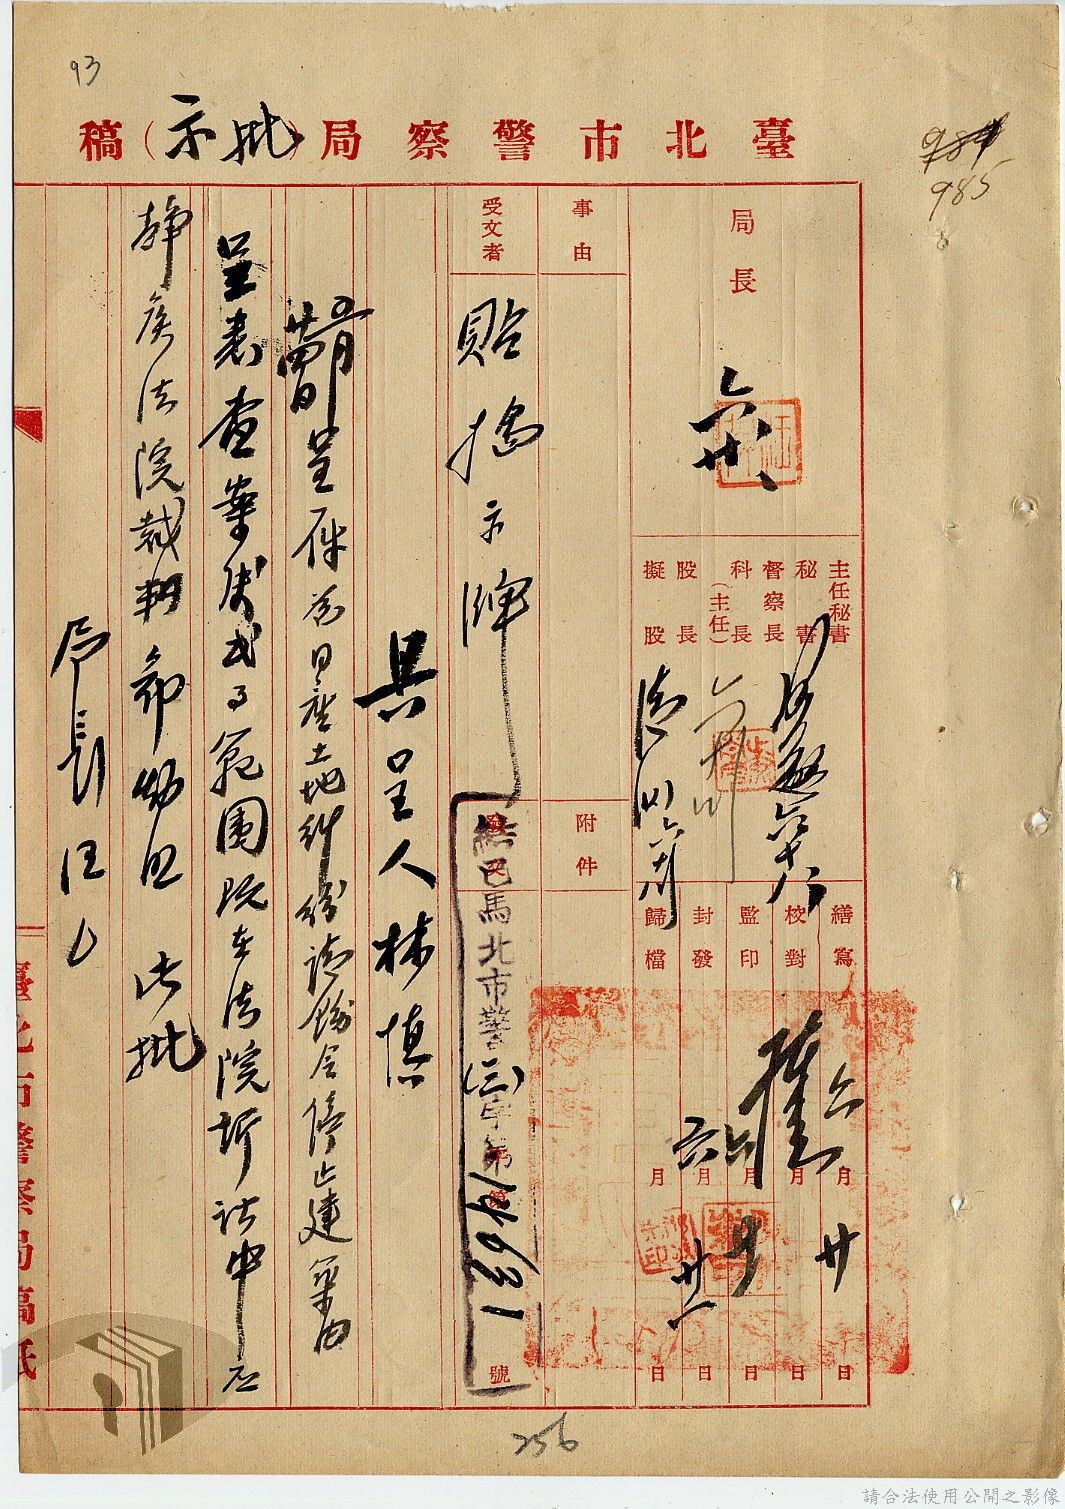 93
臺北市警察局(批示)稿
984
985
局長
主任秘書
秘書
督察長
科長(主任)
股長
擬股
繕寫 月 日
校對 月 日
監印 月 日
封發 月 日
歸檔 月 日
六 廿
六
六 廿一
事由
附件
受文者
貼揭示牌
發文
巳馬北市警(三)字第14631號
具呈人林慎
五月 日呈一件為 土地糾紛請飭令停止建築由
呈悉查案屬民事範圍既在法院訴訟中應
靜候法院裁判 知照 此批
局長 汪
臺北市警察局稿紙
256
請合法使用公開之影像